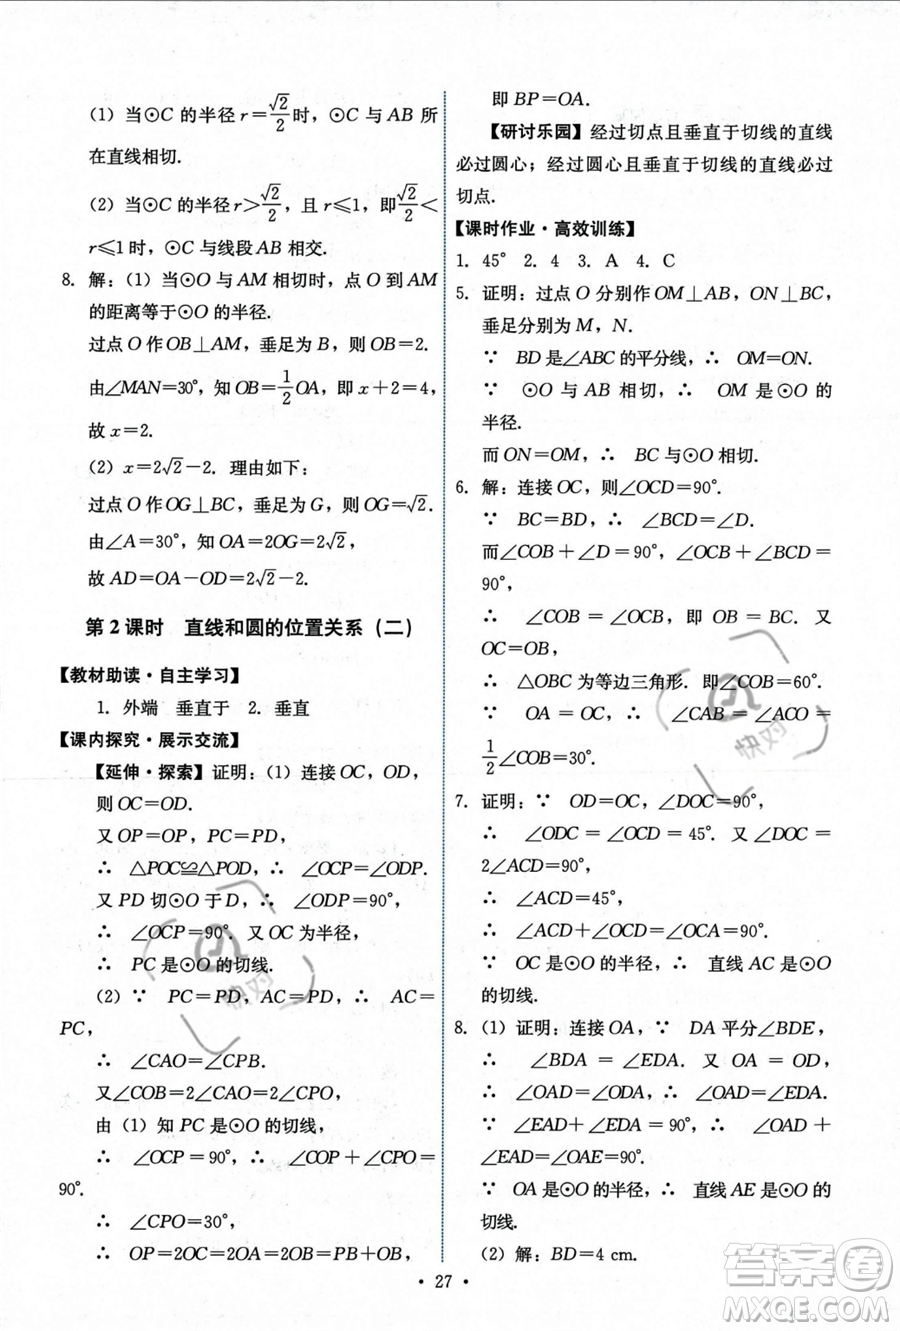 (1) 当⊙C 的半径 r=√2/2时，⊙C 与 AB 所
在直线相切.
(2) 当⊙C 的半径 r>√2/2，且 r≤1，即√2/2<
r≤1时，⊙C 与线段 AB 相交.
8. 解：(1) 当⊙O 与 AM 相切时，点 O 到 AM
的距离等于⊙O 的半径.
过点 O 作 OB⊥AM，垂足为 B，则 OB=2.
由∠MAN=30°，知 OB=1/2OA，即 x+2=4，
故 x=2.
(2) x=2√2-2. 理由如下：
过点 O 作 OG⊥BC，垂足为 G，则 OG=√2.
由∠A=30°，知 OA=2OG=2√2，
故 AD=OA-OD=2√2-2.
第 2 课时 直线和圆的位置关系（二）
【教材助读·自主学习】
1. 外端 垂直于 2. 垂直
【课内探究·展示交流】
【延伸·探索】证明：(1) 连接 OC，OD，
则 OC=OD.
又 OP=OP，PC=PD，
∴ △POC≌△POD，∴ ∠OCP=∠ODP.
又 PD 切⊙O 于 D，∴ ∠ODP=90°，
∴ ∠OCP=90°. 又 OC 为半径，
∴ PC 是⊙O 的切线.
(2) ∵ PC=PD，AC=PD，∴ AC=
PC，
∴ ∠CAO=∠CPB.
又∠COB=2∠CAO=2∠CPO，
由（1）知 PC是⊙O 的切线，
∴ ∠OCP=90°，∴ ∠COP+∠CPO=
90°.
∴ ∠CPO=30°，
∴ OP=2OC=2OB=PB+OB，
即 BP=OA.
【研讨乐园】经过切点且垂直于切线的直线
必过圆心；经过圆心且垂直于切线的直线必过
切点.
【课时作业·高效训练】
1. 45° 2. 4 3. A 4. C
5. 证明：过点 O 分别作 OM⊥AB，ON⊥BC，
垂足分别为 M，N.
∵ BD 是∠ABC 的平分线，∴ OM=ON.
∵ ⊙O 与 AB 相切，∴ OM 是⊙O 的
半径.
而 ON=OM，∴ ⊙O 与 BC 相切.
6. 解：连接 OC，则∠OCD=90°.
∵ BC=BD，∴ ∠BCD=∠D.
而∠COB+∠D=90°，∠OCB+∠BCD=
90°，
∴ ∠COB=∠OCB，即 OB=BC. 又 OB
=OC，
∴ △OBC 为等边三角形. 即∠COB=60°.
∵ OA=OC，∴ ∠CAB=∠ACO=
1/2∠COB=30°.
7. 证明：∵ OD=OC，∠DOC=90°，
∴ ∠ODC=∠OCD=45°. 又∠DOC=
2∠ACD=90°，
∴ ∠ACD=45°.
∴ ∠ACD+∠OCD=∠OCA=90°.
∵ OC 是⊙O 的半径，∴ 直线 AC 是⊙O
的切线.
8. (1) 证明：连接 OA，∵ DA 平分∠BDE，
∴ ∠BDA=∠EDA. 又 OA=OD，
∴ ∠OAD=∠ODA，∴ ∠OAD=∠EDA.
∵ ∠EAD+∠EDA=90°，∴ ∠EAD+
∠OAD=∠OAE=90°.
∵ OA 是⊙O 的半径，∴ 直线 AE 是⊙O 的
切线.
(2) 解：BD=4 cm.
• 27 •
快对
快对
答案圈
MXQE.COM